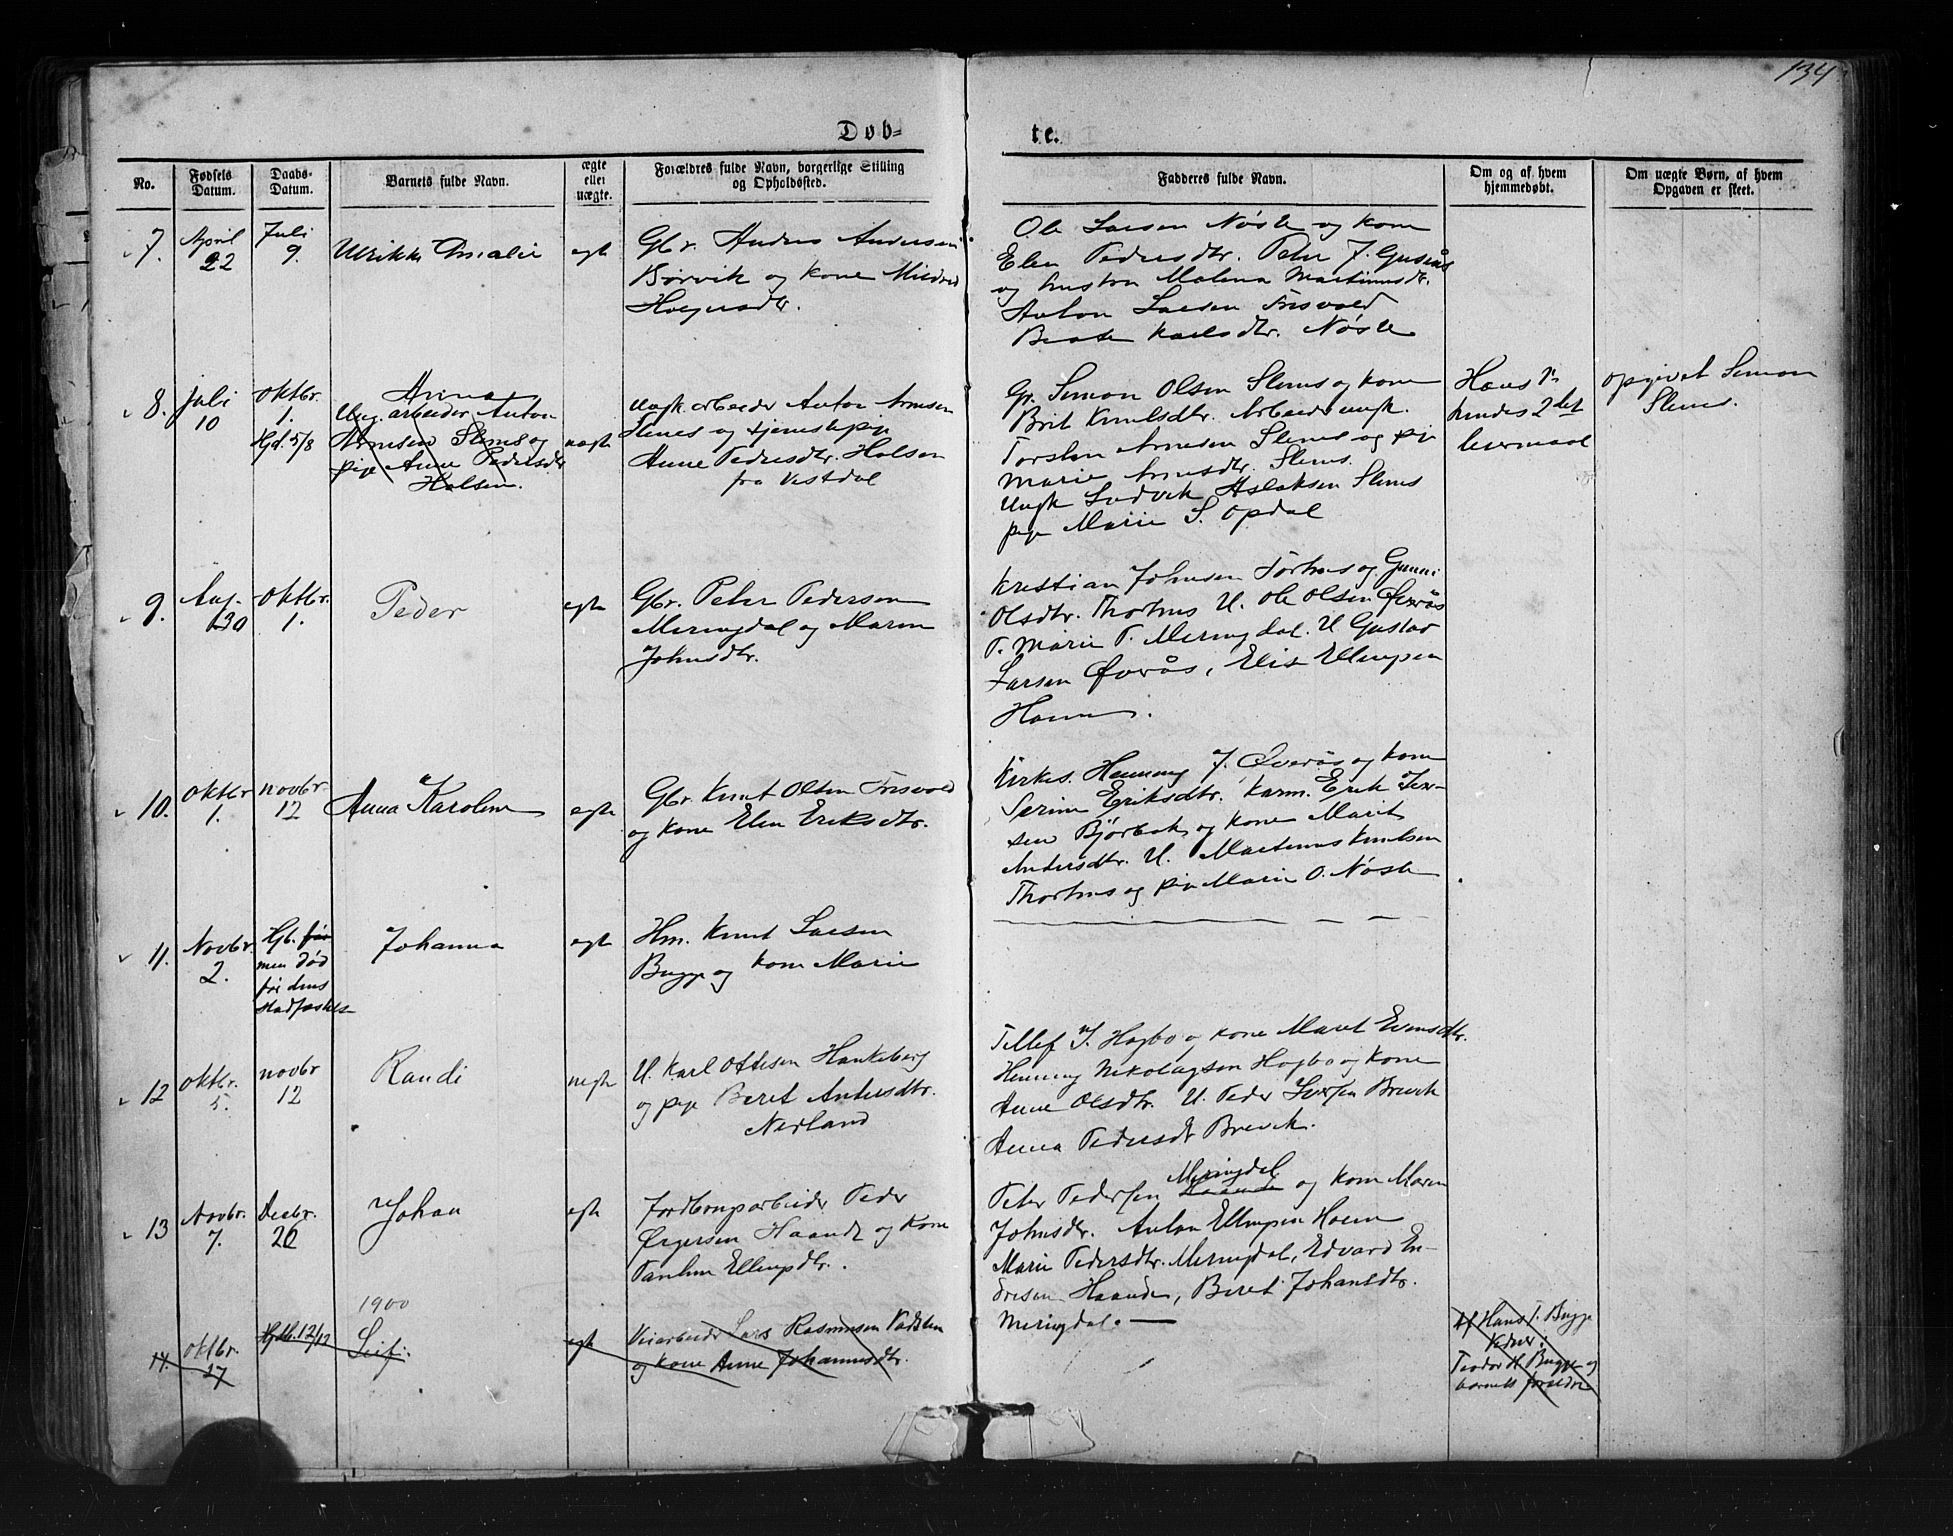 134
Døb-
te.
No.
Fødsels Datum.
Daabs-Datum.
Barnets fulde Navn.
ægte eller uægte.
Forældres fulde Navn, borgerlige Stilling og Opholdssted.
Fadderes fulde Navn.
Om og af hvem hjemmedøbt.
Om uægte Børn, af hvem Opgaven er skeet.
7.
April
22
Juli
9.
Ulrikke Amalie
egte
Gbr. Anders Andersen
Børvik og kone Mildrid
Ole Larsen Nøsle og kone
Elen Pedersdtr. Peter J.
og hustru Malena Martinusdtr.
Anton Larsen Frisvold
Beate Karlsdtr. Nøsle
8.
Juli
10
Oktbr.
1.
Hjd. 5/8
Anna
Ung. arbeider Anton
Arnesen Slems og
pige Anne Pedersdtr
Holsen.
uegte
Ungk. arbeider Anton Arnesen
Slems og tjenestepige
Anne Pedersdtr. Holsen
fra Vestdal
Gr. Simon Olsen Slems og kone
Brit Knutsdtr. Arbeider ungk.
Torsten Arnesen Slems og pige
Marie Arnesdtr. Slems.
Ungk Ludvik Aslaksen Slems
pige Marie S. Opdal
Hans 1ste
hendes 2det
leiermaal
opgivet Simon
Slems.
9.
Aug.
30
Oktbr.
1.
Peder
egte
Gbr. Peter Pedersen
Meringdal og Maren
Johnsdtr.
Kristian Johnsen Torhus og Gunni
Olsdtr. Thorhus U. Ole Olsen Øverås
P. Marie P. Meringdal. U Gustav
Larsen Øverås, Elis Ellingsen
10.
Oktbr
1.
novbr.
12
Anna Karoline
egte
Gbr. Knut Olsen Frisvold
og kone Elen Eriksdtr.
Kirkes. Henning J. Øverås og kone
Serine Eriksdtr. Karm. Erik Iver-
sen Bjørbak og kone Marit
Andersdtr. U. Martinus Knutsen
Thorhus og pige Marie O. Nøsle
11.
Novbr
2.
Hjb. før
men død
før dens
stadfæstelse
Johanna
egte
Hm. Knut Larsen
Bugge og kone Marie
12
Oktbr.
5.
novbr
12
Randi
uegte
U. Karl Ottesen Haukeberg
og pige Beret Andersdtr.
Nerland
Tellef J. Hagbø og kone Maret Evensdtr.
Henning Nikolaysen Hagbø og kone
Anne Olsdtr. U. Peder Iversen Brevik
Anna Pedersdt Brevik.
13
Novbr.
7.
Decbr.
26
Johan
egte
Jordbrugsarbeider Peder
Ørgersen Haande og kone
Pauline Ellingsdtr.
Meringdal
Peter Pedersen Haande og kone Maren
Johnsdtr. Anton Ellingsen Hoem
Marie Pedersdtr. Meringdal, Edvard En-
dresen Haande, Beret Johansdtr.
Meringdal.
14.
Oktbr.
27
Hjdb. 12/12
1900
Leif.
egte
Veiarbeider Lars Rasmussen Vadsten
og kone Anne Johannesdtr.
Af Hans J. Bugge
Vidner:
Teodor H. Bugge og
barnets forældre